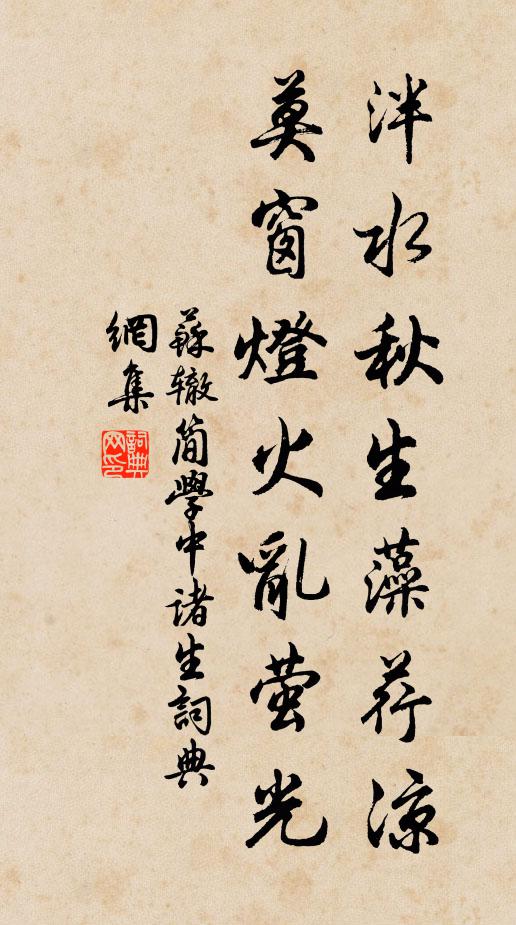 泮水秋生藻荇涼
莫窗燈火亂萤光
蘇辙简學中諸生詞典
網集
詞典
网印